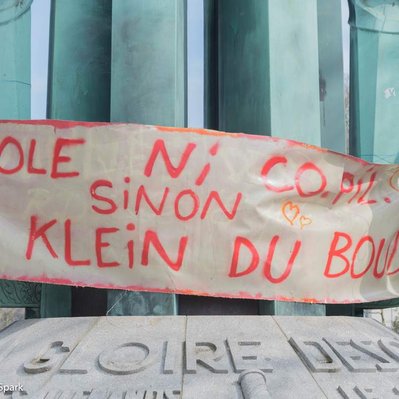 OLE Ni CO.PiL.
SiNON
KLEiN DU BOUL
GLOIRE DES
Spark